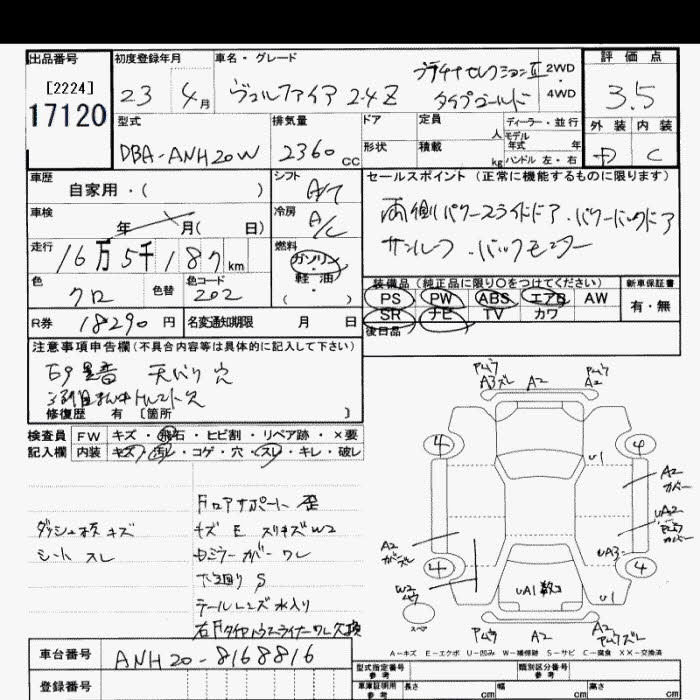 出品番号 初度登録年月 車名・グレード 評価点
[2224]
17120
23 4月 ヴェルファイア 2.4Z プラチナセレクションⅡ 2WD
タイプゴールド 4WD
3.5
型式 排気量 ドア 定員 人 ディーラー・並行
モデル年式 年式
外装 内装
DBA-ANH20W 2360cc 形状 積載 kg ハンドル 左・右
D C
車歴 自家用・( ) シフト A/T
セールスポイント (正常に機能するものに限ります)
車検 年 月( 日) 冷房 A/C
両側パワースライドドア・パワーバックドア
サンルーフ・バックモニター
走行 16万5千187km 燃料 ガソリン・軽油・( )
色 クロ 色替 色コード 202
装備品 (純正品に限り○をつけてください) 新車保証書
PS PW ABS エアB AW 有・無
SR ナビ TV カワ
R券 18290円 名変通知期限 月 日
後日品
注意事項申告欄(不具合内容等は具体的に記入して下さい)
天バリ 穴
修復歴 有 [箇所 ]
検査員 FW キズ・飛石・ヒビ割・リペア跡・×要
記入欄 内装 キズ・汚レ・コゲ・穴・スレ・キレ・破レ
ダッシュ板 キズ
シート スレ
Fロアサポート 歪
キズ E スリキズ W2
ミラーカバー ワレ
下廻り S
テールレンズ 水入り
右Fタイヤハウスライナー ワレ 欠損
A3ズレ A2 A2
4 4
U1
A2
カバー
UA2
A2
UA3
4 4
W2
UA1 数コ
U1
スペア
A2
A-キズ E-エクボ U-凹み W-補修跡 S-サビ C-腐食 XX-交換済
車台番号 ANH20-8168816
登録番号
型式指定番号 参考 類別区分番号 参考
車庫証明用 参考 長さ cm 幅 cm 高さ cm